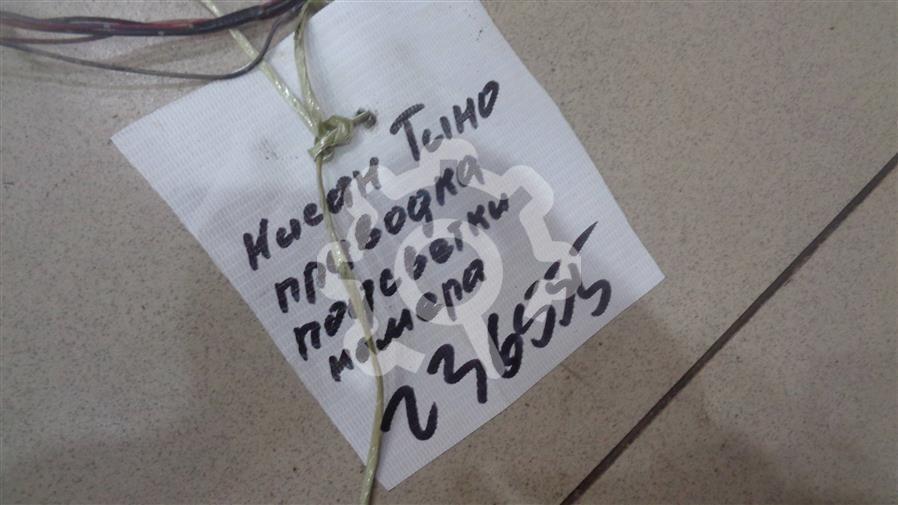 Нисан Тыно
проводка
подсветки
номера
236555